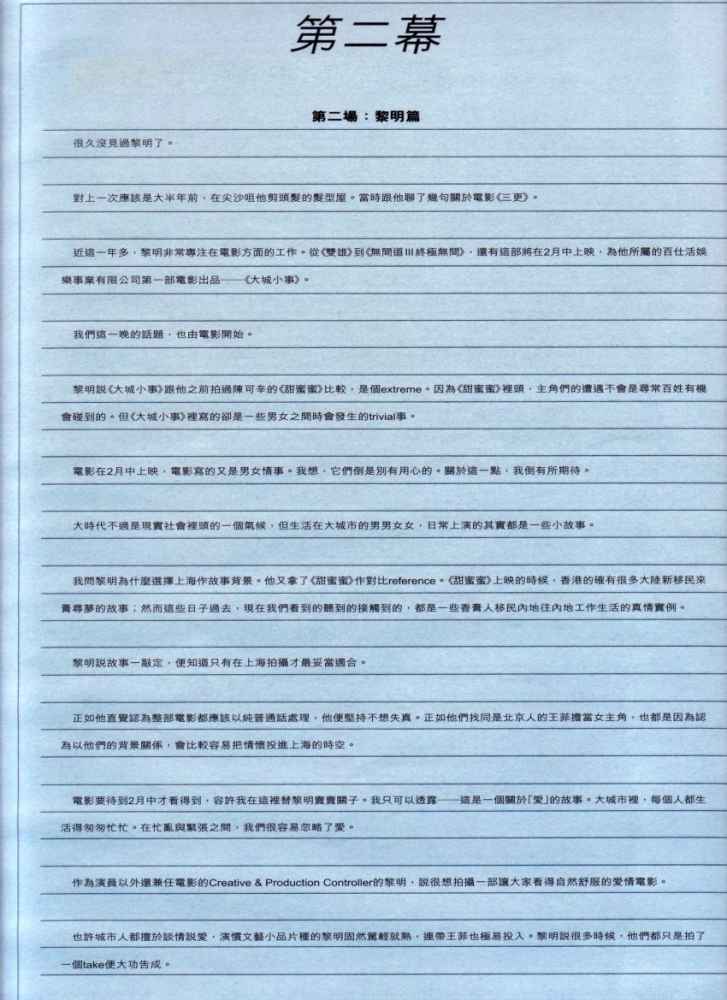 第二幕
第二場：黎明篇
很久沒見過黎明了。
對上一次應該是大半年前，在尖沙咀他剪頭髮的髮型屋。當時跟他聊了幾句關於電影《三更》。
近這一年多，黎明非常專注在電影方面的工作。從《雙雄》到《無間道III終極無間》，還有這部將在2月中上映，為他所屬的百仕活娛
樂事業有限公司第一部電影出品──《大城小事》。
我們這一晚的話題，也由電影開始。
黎明說《大城小事》跟他之前拍過陳可辛的《甜蜜蜜》比較，是個extreme。因為《甜蜜蜜》裡頭，主角們的遭遇不會是尋常百姓有機
會碰到的。但《大城小事》裡寫的卻是一些男女之間時會發生的trivial事。
電影在2月中上映，電影寫的又是男女情事。我想，它們倒是別有用心的。關於這一點，我倒有所期待。
大時代不過是現實社會裡頭的一個氣候，但生活在大城市的男男女女，日常上演的其實都是一些小故事。
我問黎明為什麼選擇上海作故事背景。他又拿了《甜蜜蜜》作對比reference。《甜蜜蜜》上映的時候，香港的確有很多大陸新移民來
膏尋夢的故事；然而這些日子過去，現在我們看到的聽到的接觸到的，都是一些香膏人移民內地往內地工作生活的真情實例。
黎明說故事一敲定，便知道只有在上海拍攝才最妥當適合。
正如他直覺認為整部電影都應該以純普通話處理，他便堅持不想失真。正如他們找同是北京人的王菲擔當女主角，也都是因為認
為以他們的背景關係，會比較容易把情懷投進上海的時空。
電影要待到2月中才看得到，容許我在這裡替黎明賣賣關子。我只可以透露──這是一個關於「愛」的故事。大城市裡，每個人都生
活得匆匆忙忙。在忙亂與緊張之間，我們很容易忽略了愛。
作為演員以外還兼任電影的Creative & Production Controller的黎明，說很想拍攝一部讓大家看得自然舒服的愛情電影。
也許城市人都擅於談情說愛，演慣文藝小品片種的黎明固然駕輕就熟，連帶王菲也極易投入。黎明說很多時候，他們都只是拍了
一個take便大功告成。